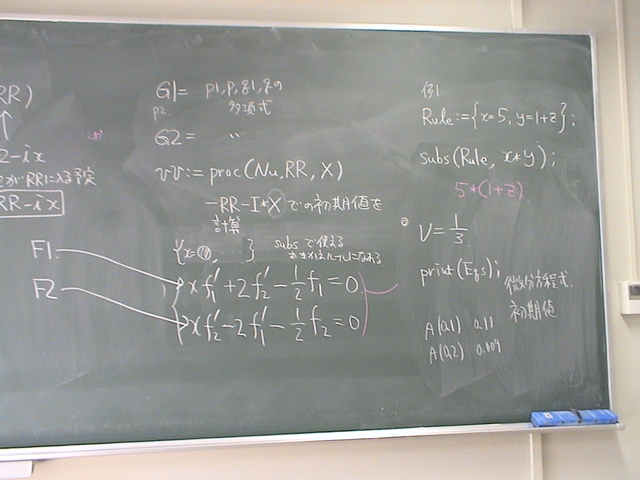 RR)
2-ix
RR-ix
G1= p1, p, g1, gの
p2. 多項式
G2= 〃
vV:= proc(Nu,RR, X)
-RR-I*X での初期値を
計算
subs で使える
F1
F2
xf₁'+2f₂'-1/2f₁=0
xf₂'-2f₁'-1/2f₂=0
例
Rule:={x=5, y=1+z};
subs(Rule, x*y);
5*(1+z)
V=1/3
print(Eqs);
微分方程式.
初期値
A(0.1) 0.11
A(0.2) 0.009